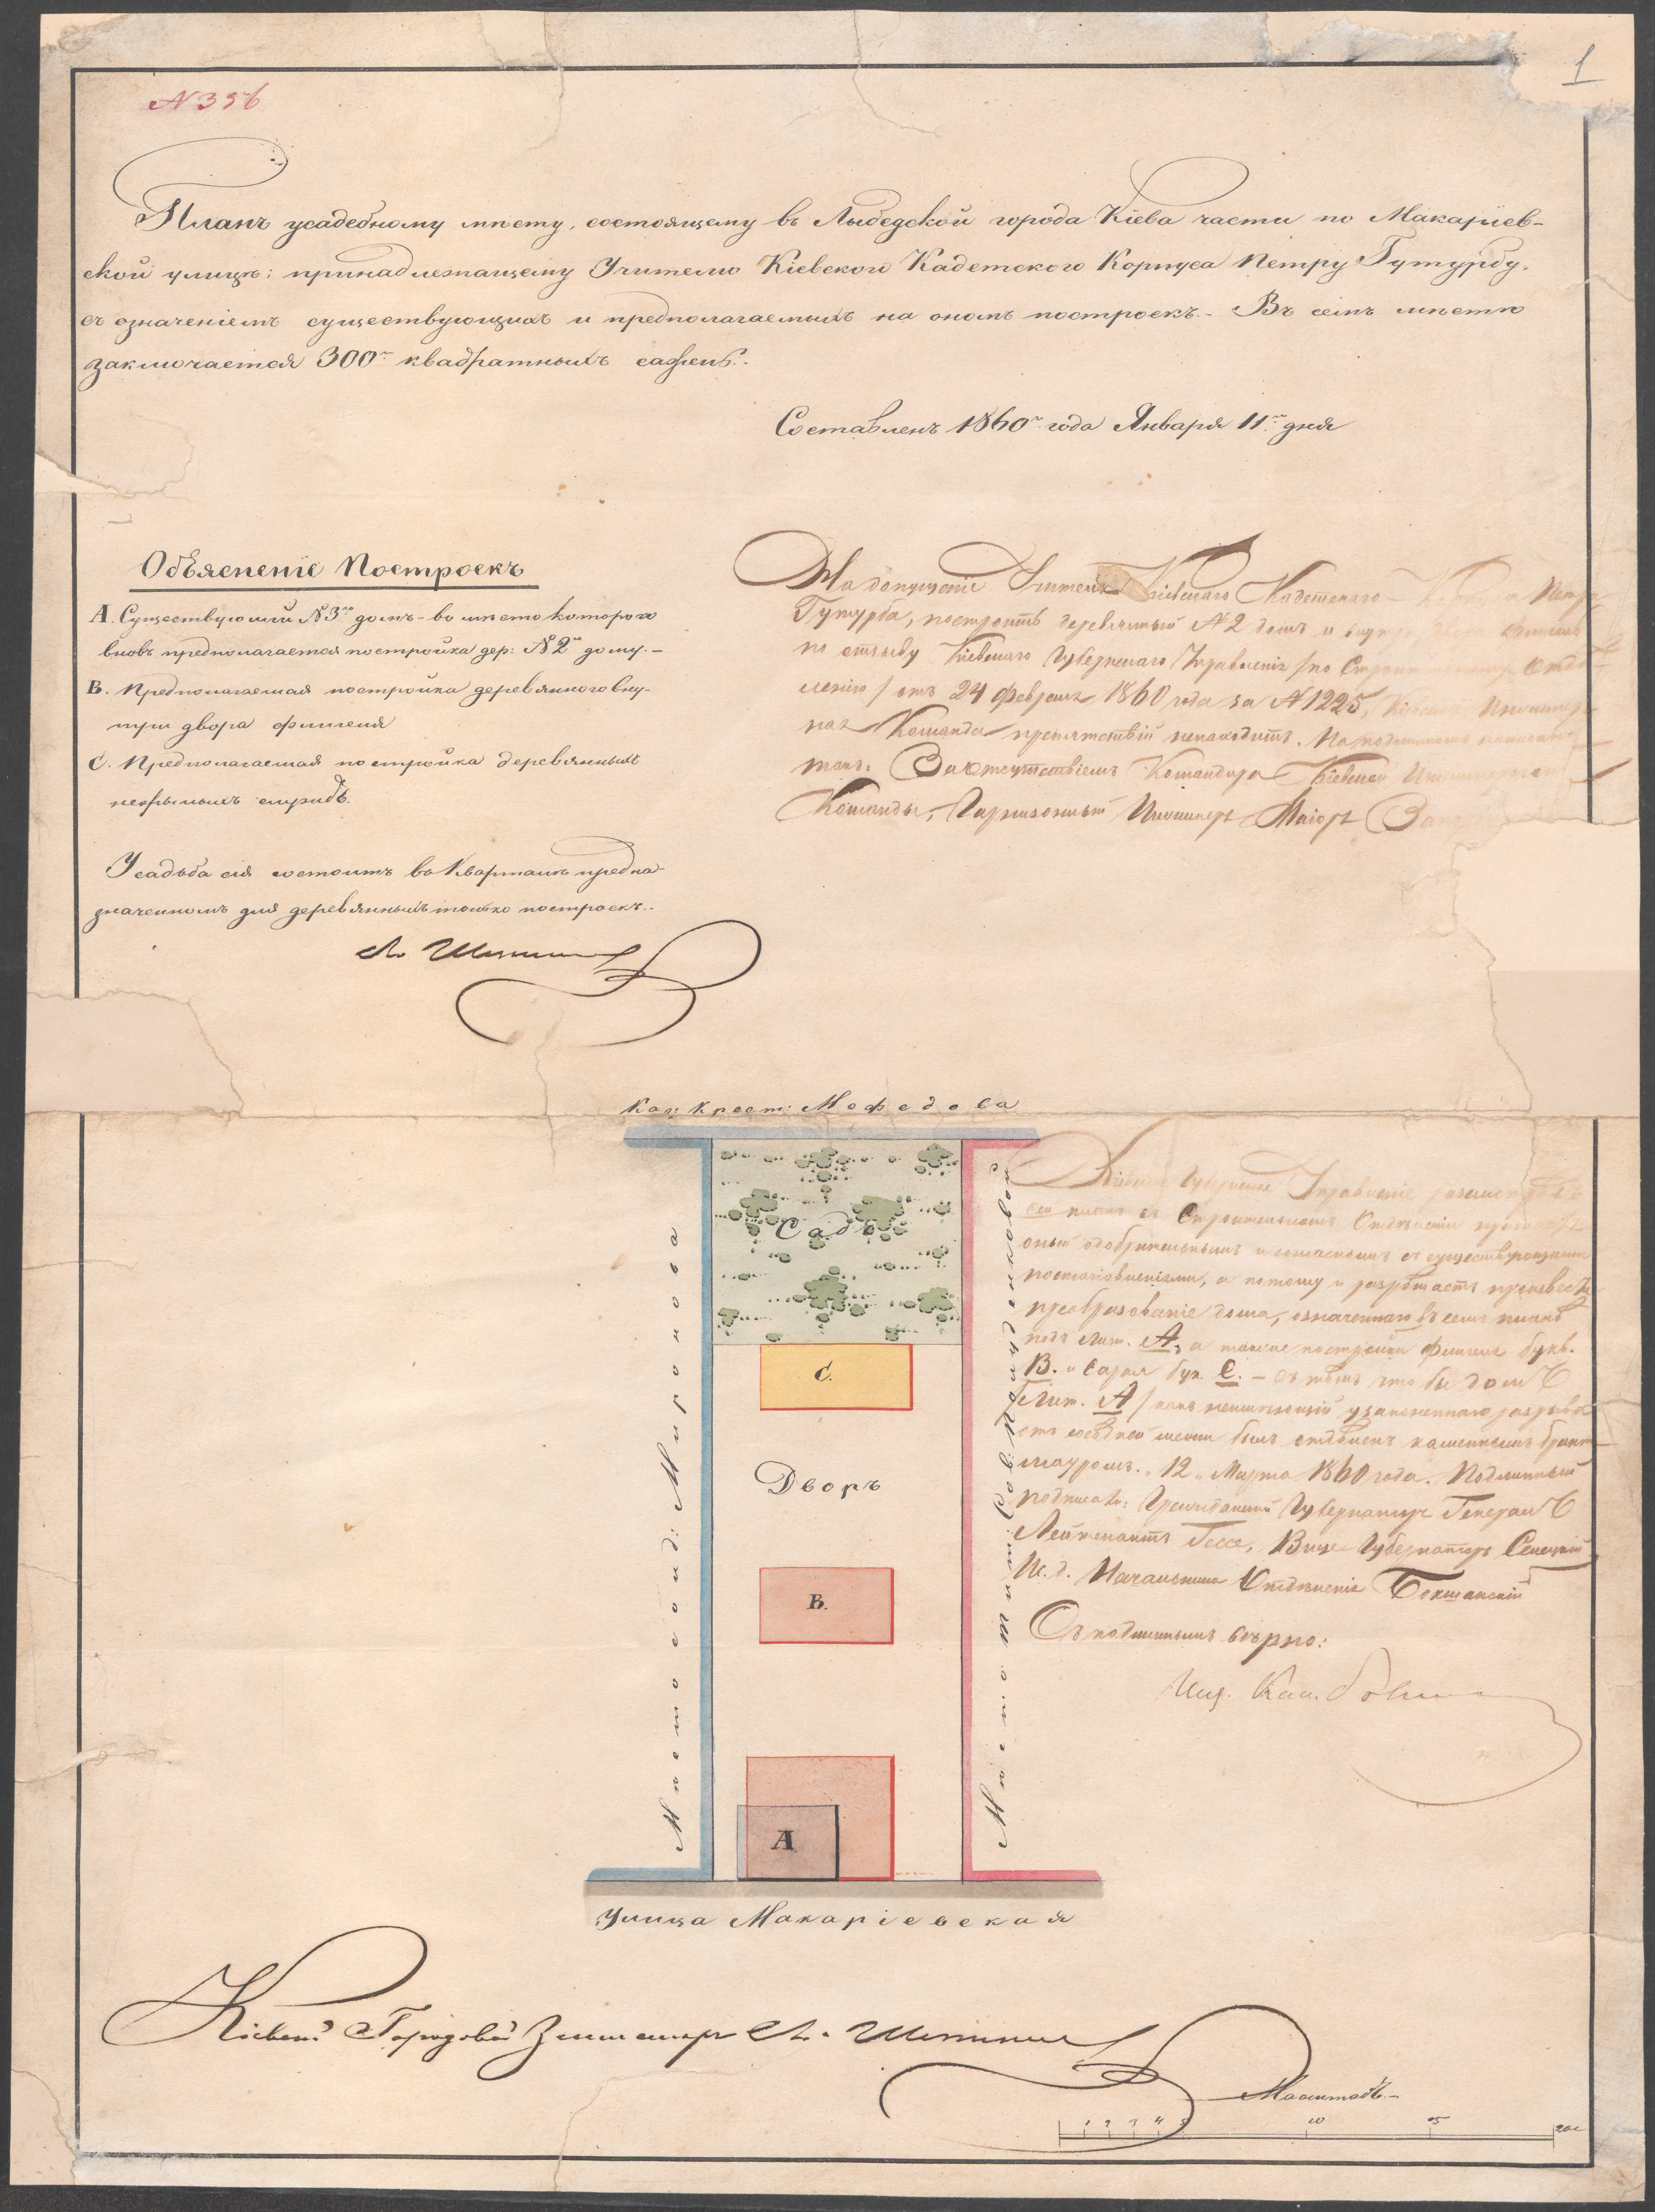 № 356
1
Планъ усадебному мѣсту, состоящему въ Лыбедской города Кіева части по Макаріев-
ской улицѣ; принадлежащему Учителю Кіевского Кадетского Корпуса Петру Гутурбу.
съ означеніемъ существующихъ и предполагаемыхъ на ономъ построекъ.- Въ семъ мѣстѣ
заключается 300 квадратныхъ сажень.-
Составленъ 1860 года Января 11 дня
Объясненіе Построекъ
А. Существующій № 3 домъ - во мѣсто которого
вновь предполагается постройка дер: № 2 дому.-
В. Предполагаемая постройка деревянного вну-
три двора флигеля
С. Предполагаемая постройка деревянныхъ
нежылыхъ службъ.
Усадьба сія состоитъ въ Кварталѣ предна-
значенномъ для деревянныхъ только построекъ.-
На допущеніе Учителя Кіевскаго Кадетскаго Корпуса Петра
Гутурба, построить деревянный № 2 домъ и внутри двора флигель
по отзыву Кіевскаго Губернскаго Правленія /по Строительному Отдѣ-
ленію/ отъ 24 Февраля 1860 года за № 1225, Кіевская Инженер-
ная Команда препятствій ненаходитъ. На подлинномъ написано
такъ: За отсутствіемъ Командира Кіевской Инженерной
Команды, Гарнизонный Инженеръ Маіоръ
Каз: Крест: Мефедова
Садъ
С.
Дворъ
В.
А
Мѣсто солд: Миронова
Мѣсто тит: Сов:
Улица Макаріевская
Кіевское Губернское Правленіе разсмотрѣвъ
сей планъ въ Строительномъ Отдѣленіи
оный одобрительнымъ и согласнымъ съ существующими
постановленіями, а потому и разрѣшаетъ произвесть
преобразованіе дома, означеннаго въ семъ планѣ
подъ Лит. А, а также постройки флигеля букв.
В. и Сарая бук. С. - съ тѣмъ что бы домъ
Лит. А /какъ неимѣющій узаконеннаго разрыва
отъ сосѣдней межи былъ отдѣленъ каменнымъ бранд-
мауромъ. „12„ Марта 1860 года. Подлинный
подписали: Гражданскій Губернаторъ Генералъ
Лейтенантъ Гессе, Вице-Губернаторъ Селецкій
И. д. Начальника Отдѣленія Бокшанскій
Съ подлиннымъ вѣрно:
Кіевскій Городовой Землемеръ
Масштабъ
1 2 3 4 5 10 15 20 с